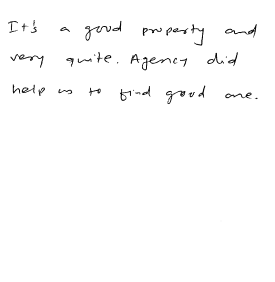 It's a good property and
very quite. Agency did
help us to find good one.